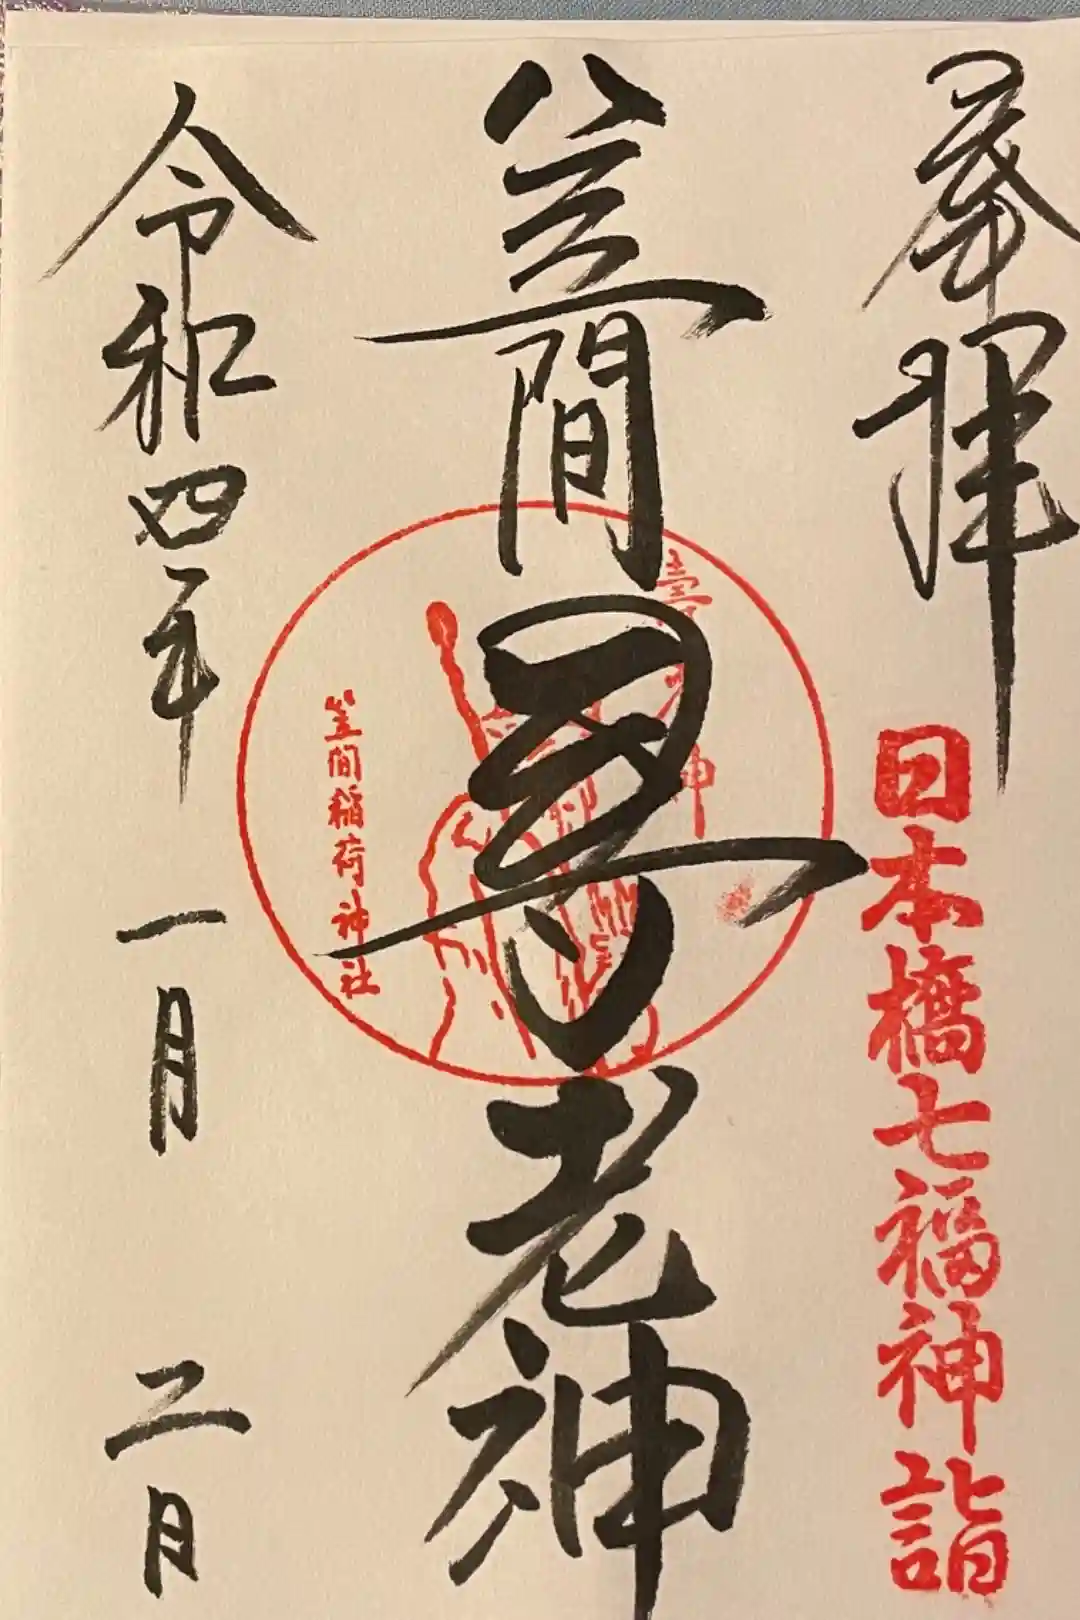 奉拝
日本橋七福神詣
笠間壽老神
壽老神
笠間稲荷神社
令和四年一月二日